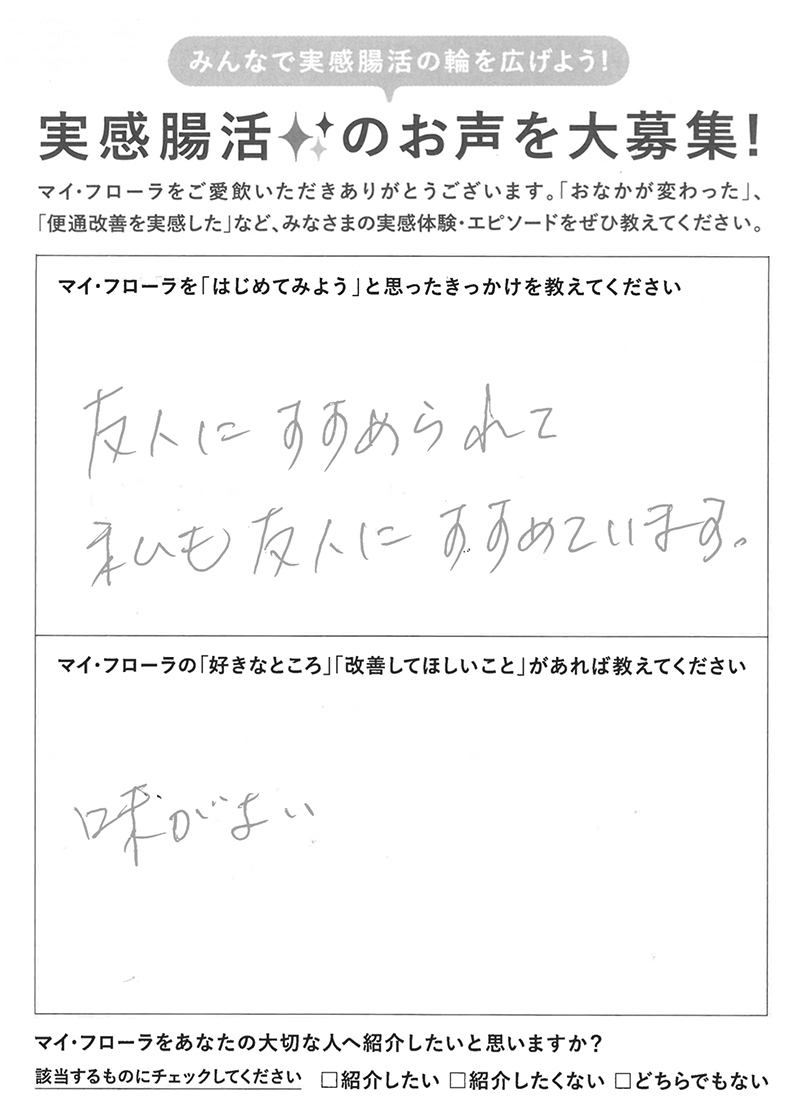 みんなで実感腸活の輪を広げよう!
実感腸活のお声を大募集!
マイ・フローラをご愛飲いただきありがとうございます。「おなかが変わった」、
「便通改善を実感した」など、みなさまの実感体験・エピソードをぜひ教えてください。
マイ・フローラを「はじめてみよう」と思ったきっかけを教えてください
友人にすすめられて
私も友人にすすめています。
マイ・フローラの「好きなところ」「改善してほしいこと」があれば教えてください
味がよい
マイ・フローラをあなたの大切な人へ紹介したいと思いますか?
該当するものにチェックしてください □紹介したい □紹介したくない □どちらでもない